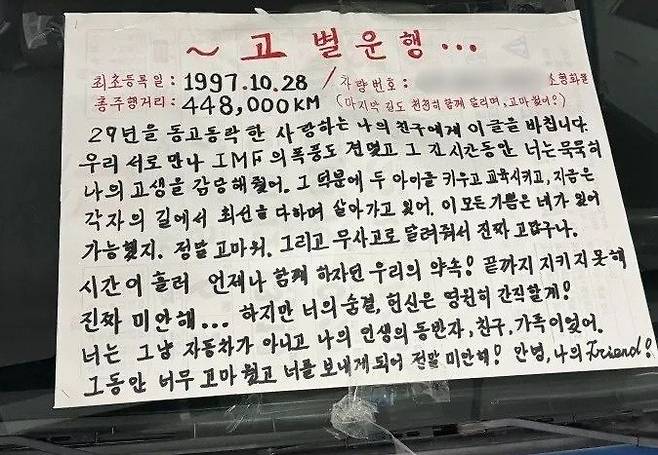 ~ 고 별 운 행 ...
최초등록일 : 1997.10.28 / 차량번호 : 소형화물
총주행거리 : 448,000KM (마지막 길도 천천히 함께 달리며, 고마웠어?)
29년을 동고동락한 사랑하는 나의 친구에게 이 글을 바칩니다.
우리 서로 만나 IMF의 폭풍도 견뎠고 그 긴시간동안 너는 묵묵히
나의 고생을 감당해줬어. 그 덕분에 두 아이를 키우고 교육시키고, 지금은
각자의 길에서 최선을 다하며 살아가고 있어. 이 모든 기쁨은 네가 있어
가능했지. 정말 고마워. 그리고 무사고로 달려줘서 진짜 고맙구나.
시간이 흘러 언제나 함께 하자던 우리의 약속! 끝까지 지키지 못해
진짜 미안해... 하지만 너의 숨결, 헌신은 영원히 간직할게!
너는 그냥 자동차가 아니고 나의 인생의 동반자, 친구, 가족이었어.
그동안 너무 고마웠고 너를 보내게 되어 정말 미안해! 안녕, 나의 Friend!